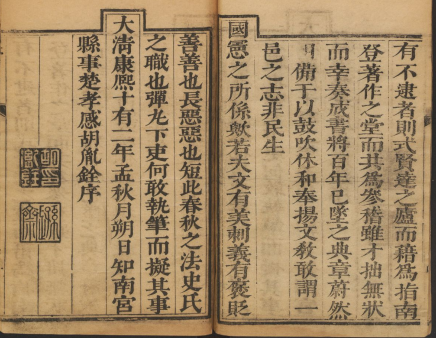 有不逮者則式賢達之廬而藉為指南
登著作之堂而其為參稽雖才拙無狀
而幸奏成書將百年已墜之典章蔚然
明備于以鼓吹休和奉揚文教敢謂一
邑之志非民生
國憲之所係歟若夫文有美刺義有褒貶
善善也長惡惡也短此春秋之法史氏
之職也彈丸下吏何敢執筆而擬其事
大清康熙十有二年孟秋月朔日知南宮
縣事楚孝感胡胤銓序